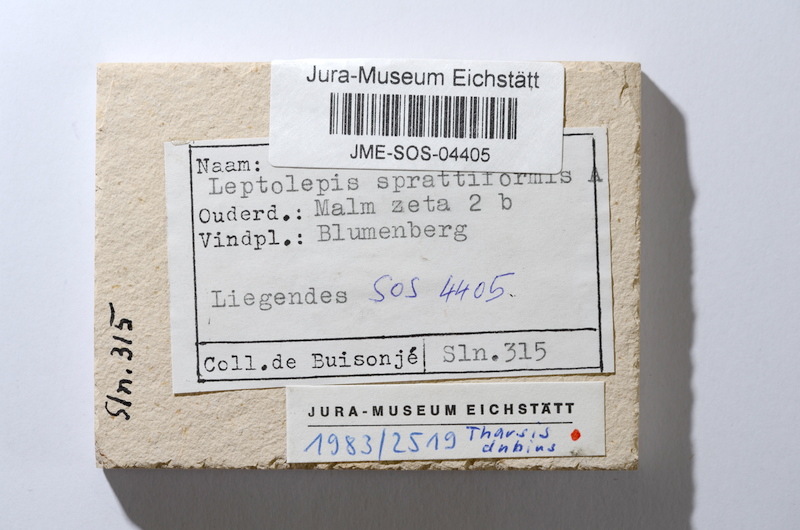 Jura-Museum Eichstätt
JME-SOS-04405
Naam:
Leptolepis sprattiformis A
Ouderd.: Malm zeta 2 b
Vindpl.: Blumenberg
Liegendes SOS 4405.
Coll.de Buisonjé Sln.315
Sln.315
JURA-MUSEUM EICHSTÄTT
1983/2519 Tharsis
dubius